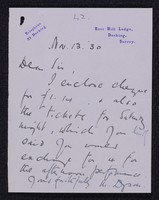 Telephone
Dorking.
Rose Hill Lodge,
Dorking,
Surrey.
Nov. 13. 30
Dear Sir,
I enclose cheque
for £1. & also
the tickets for Saturday
night, which you
said you would
exchange for
the afternoon performance
Yours faithfully